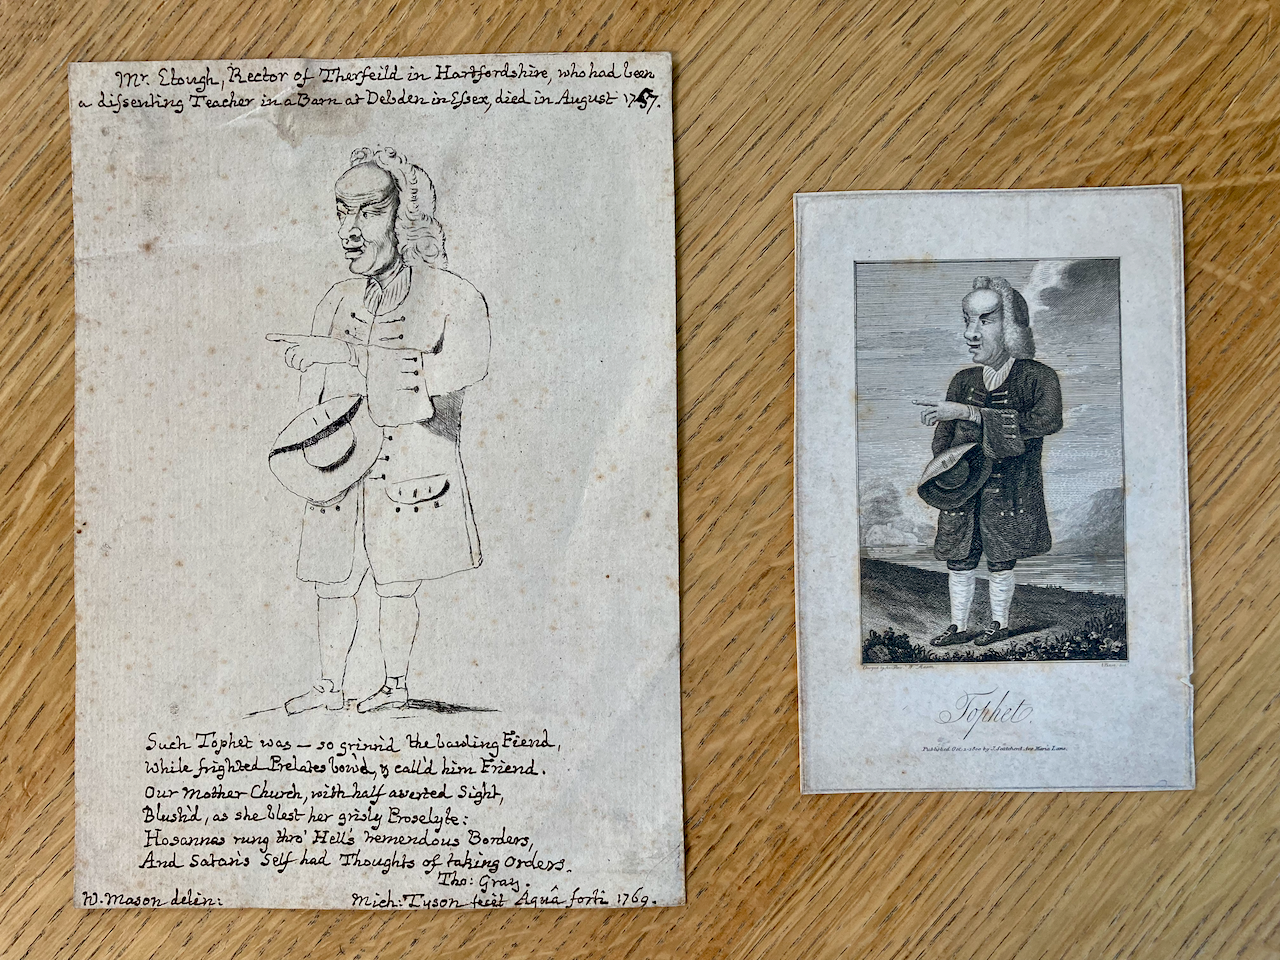 Mr. Etough, Rector of Therfeild in Hartfordshire, who had been
a dissenting Teacher in a Barn at Debden in Essex, died in August 1757.
Such Tophet was – so grinn'd the bawling Fiend,
While frighted Prelates bow'd, & call'd him Friend.
Our Mother Church, with half averted Sight,
Blush'd, as she blest her grisly Proselyte:
Hosannas rung thro' Hell's tremendous Borders,
And Satan's Self had Thoughts of taking Orders.
Tho: Gray.
W. Mason delin:
Mich: Tyson fecit Aquâ forti 1769.
Mason
Tophet.
Published Oct. 1. 1800 by J. Ave Maria Lane.